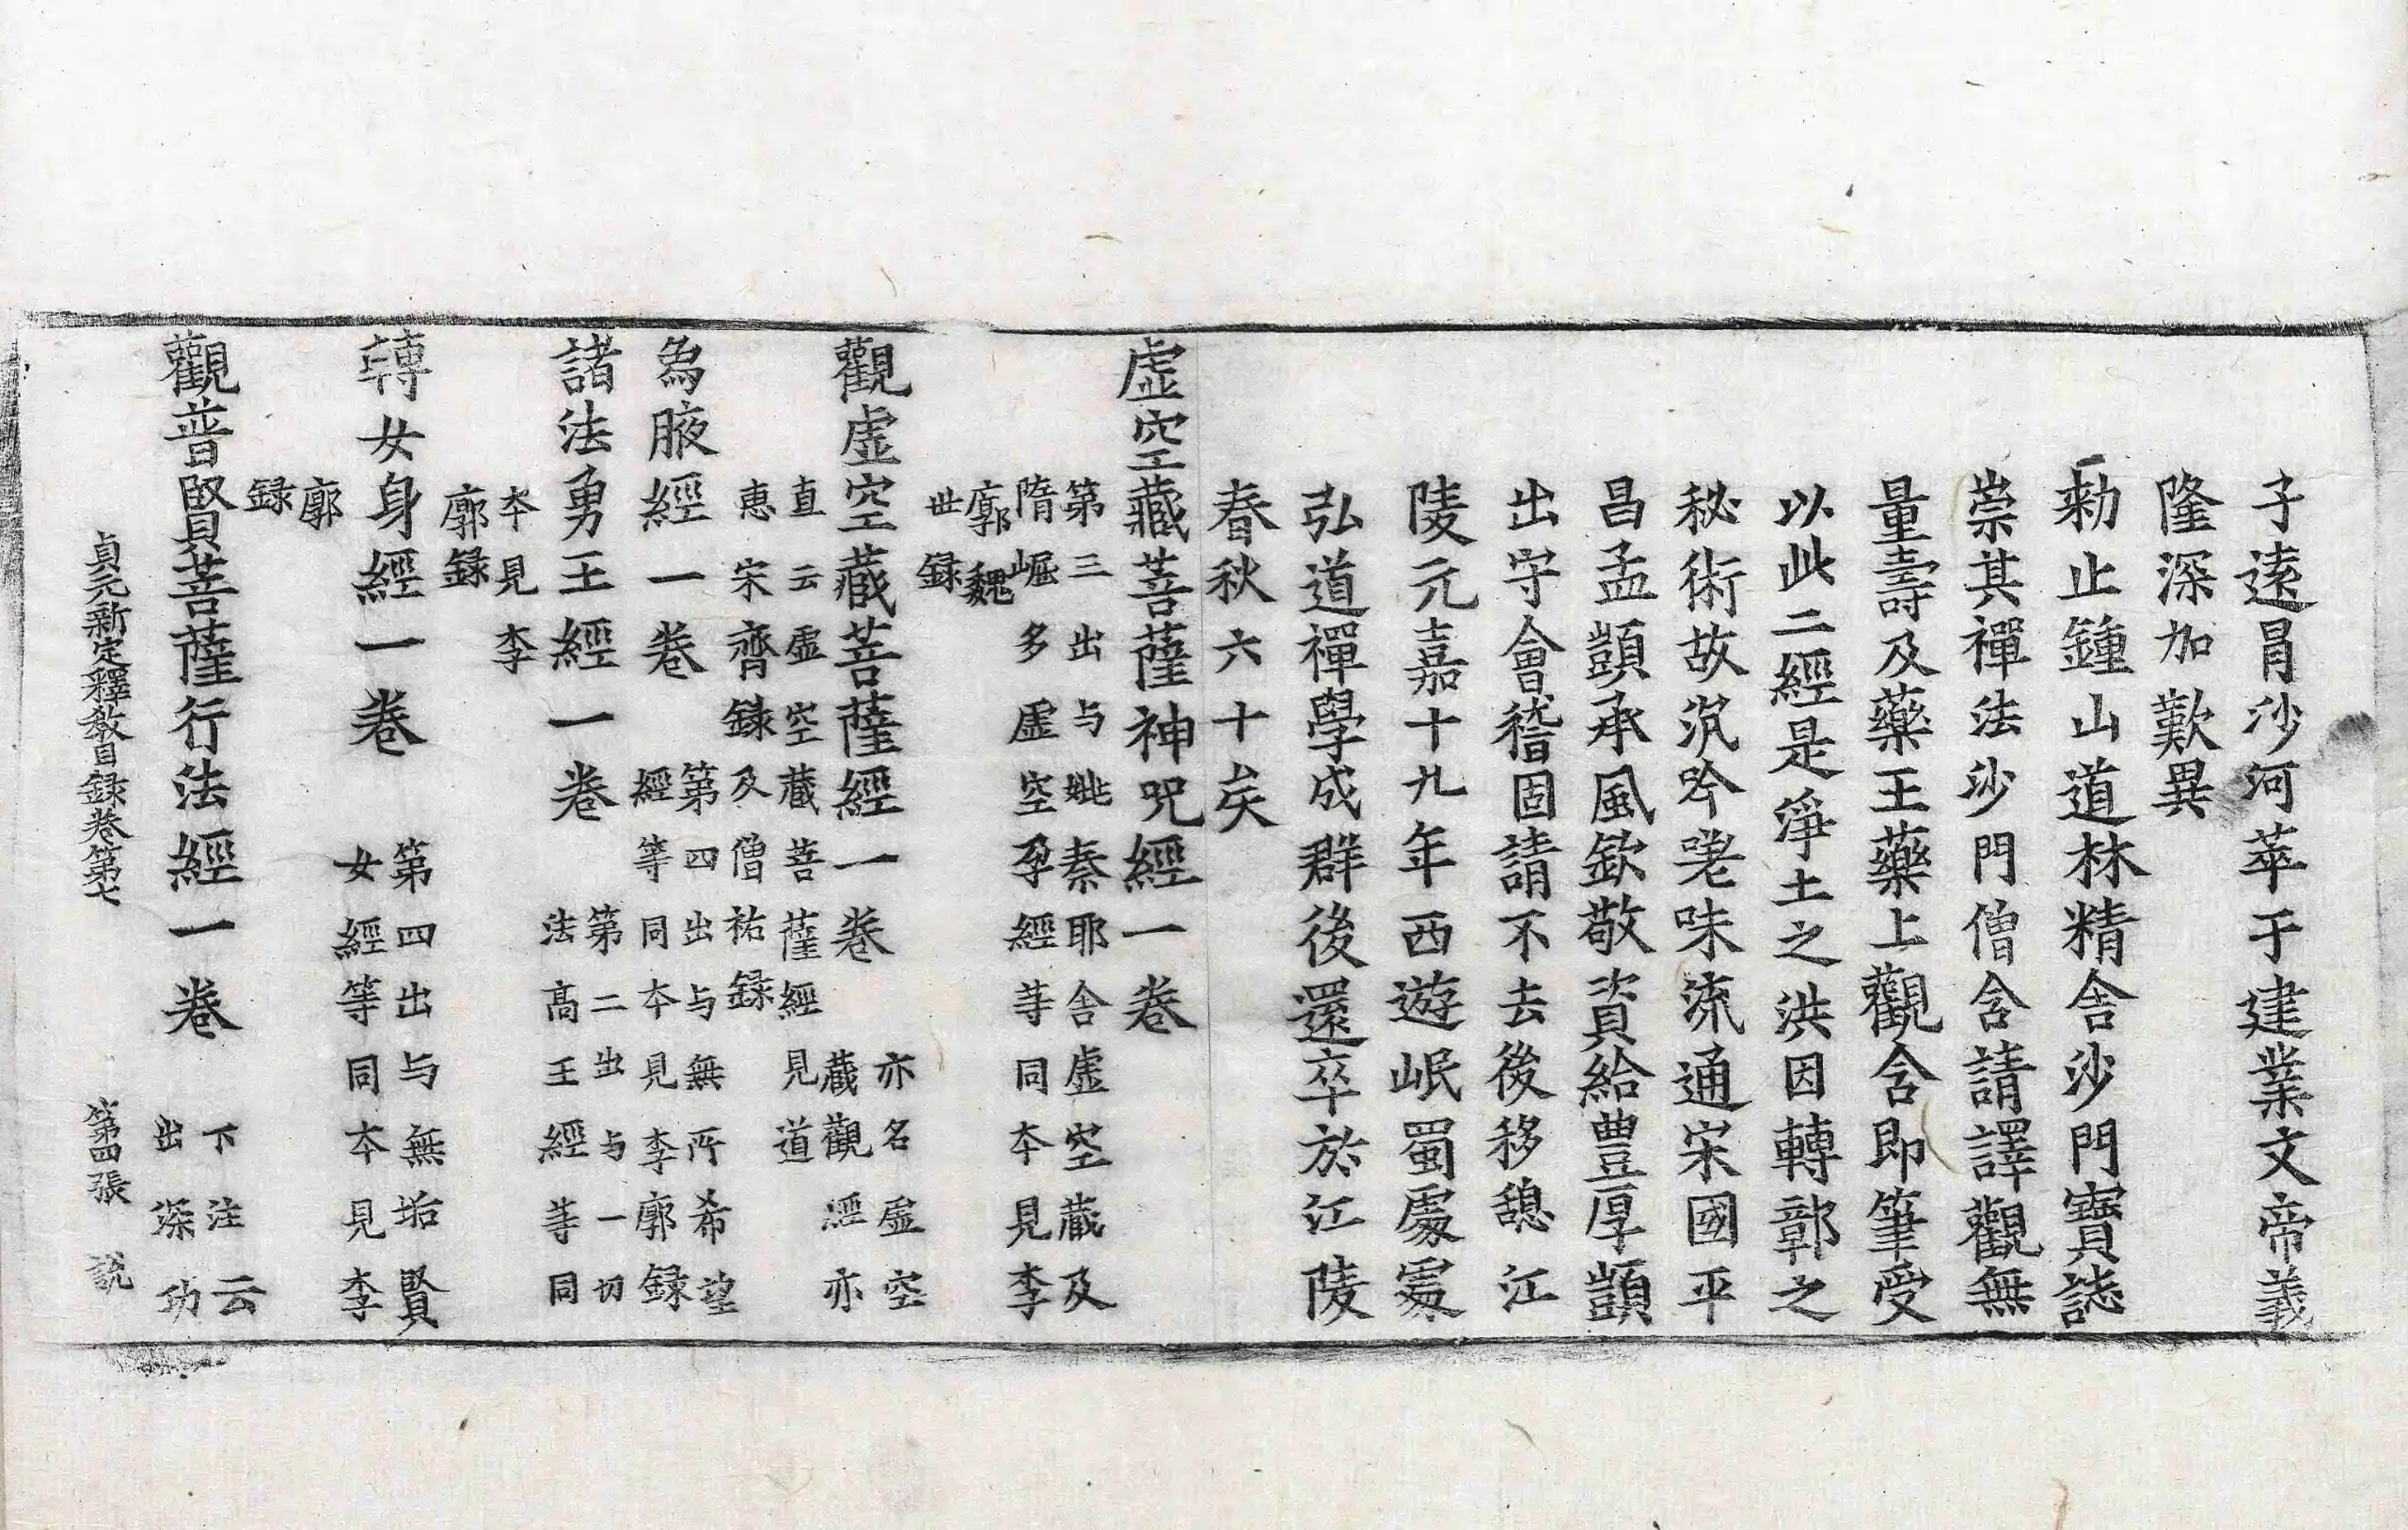 子遠冒沙河萃于建業文帝義
隆深加歎異
勑止鍾山道林精舍沙門寶誌
崇其禪法沙門僧含請譯觀無
量壽及藥王藥上觀含即筆受
以此二經是淨土之洪因轉鄣之
秘術故沉吟嗟味流通宋國平
昌孟顗承風欽敬資給豊厚顗
出守會稽固請不去後移憩江
陵元嘉十九年西遊岷蜀處處
弘道禪學成群後還卒於江陵
春秋六十矣
虛空藏菩薩神咒經一卷
第三出与姚秦耶舍虛空藏及
隋崛多虛空孕經等同夲見李
廓魏
世錄
觀虛空藏菩薩經一卷
亦名虛空
藏觀經亦
直云虛空藏菩薩經見道
惠宋齊錄及僧祐錄
為腋經一卷
第四出与無所希望
經等同夲見李廓錄
諸法勇王經一卷
第二出与一切
法高王經等同
夲見李
廓錄
轉女身經一卷
第四出与無垢賢
女經等同夲見李
廓
錄
觀普賢菩薩行法經一卷
下注云
出深功
貞元新定釋教目錄卷第七 第四張 說